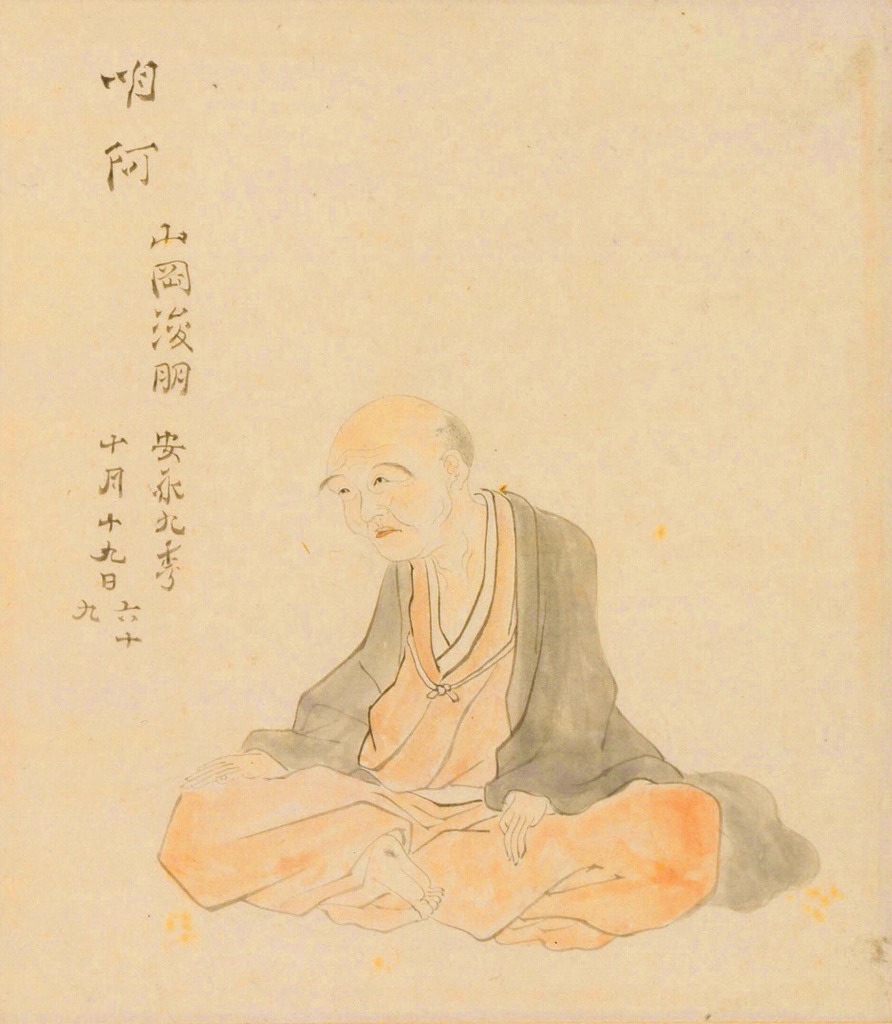 明阿
山岡浚明
安永九秊
十月十九日
六十
九